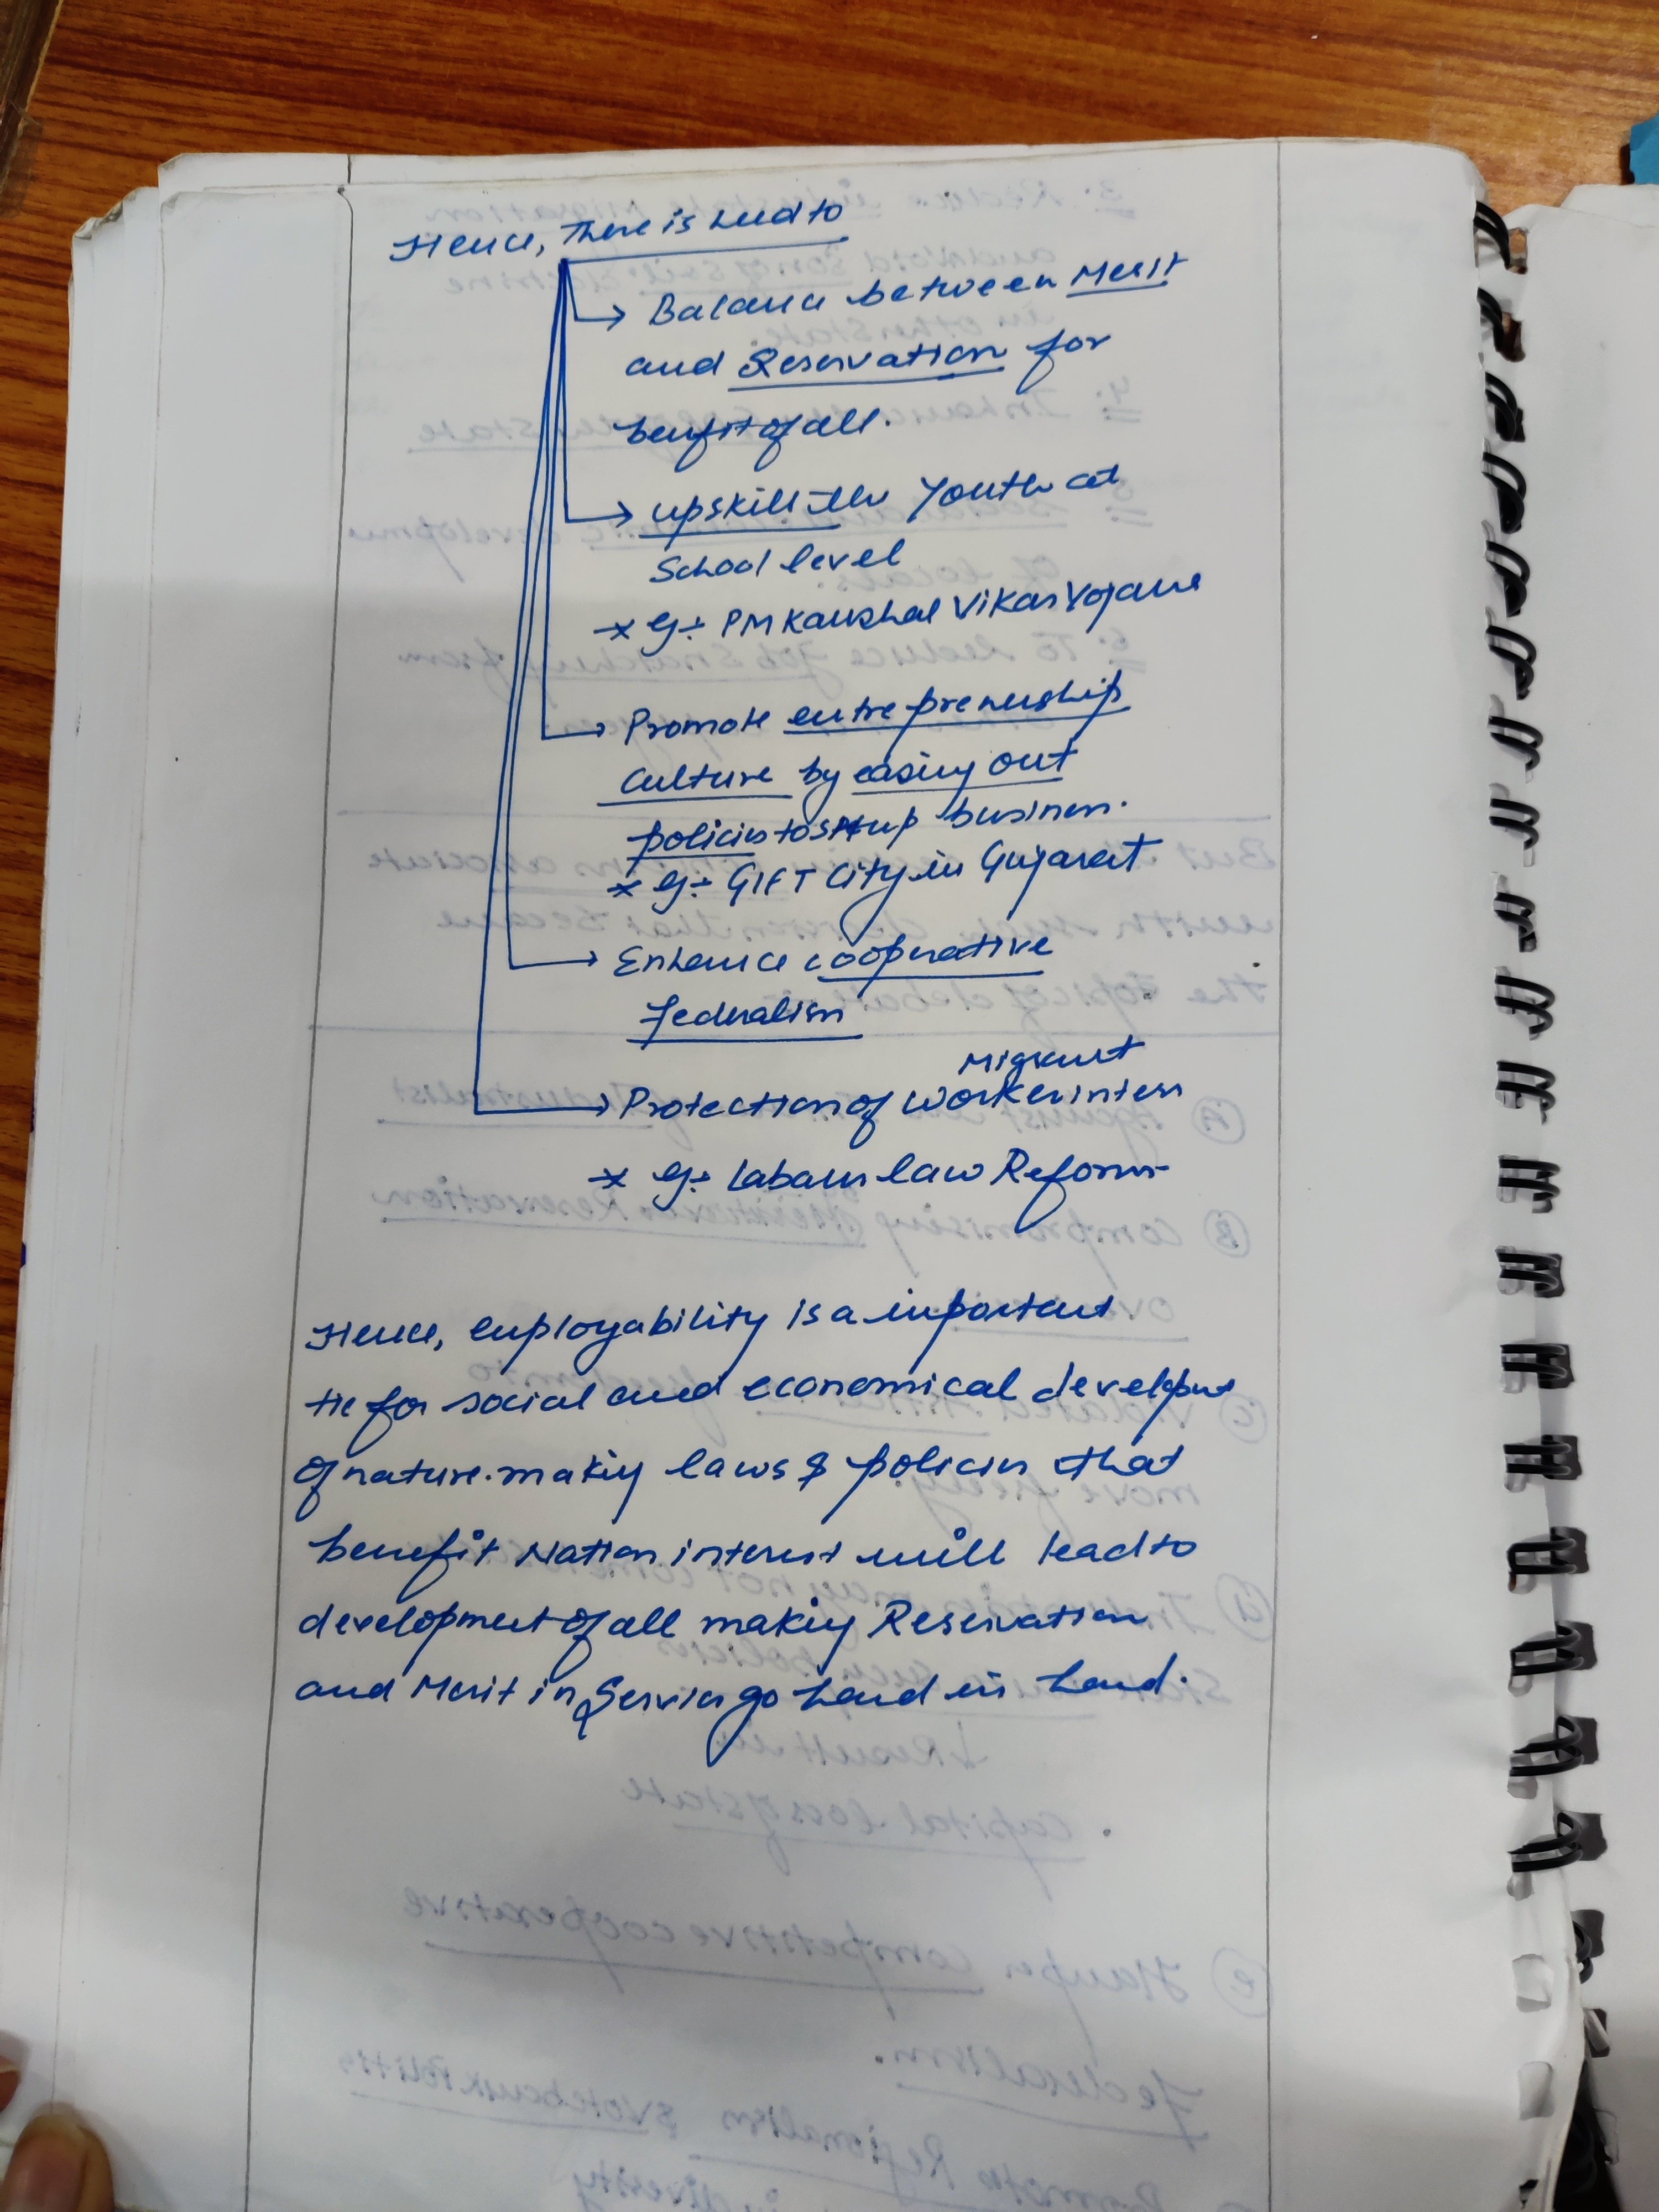 Hence, There is need to
→ Balance between Merit
and Reservation for
benefit of all.
→ upskill the Youth at
School level
* eg:- PM Kaushal Vikas Yojana
→ Promote entreprenership
culture by easing out
policies to setup business.
* eg:- GIFT City in Gujarat
→ Enhance cooperative
federalism
Migrant
→ Protection of worker interest
* eg:- Labour law Reforms
Hence, employability is a important
tie for social and economical development
of nature. making laws & policies that
benefit Nation interest will lead to
development of all making Reservation
and Merit in Services go hand in hand.